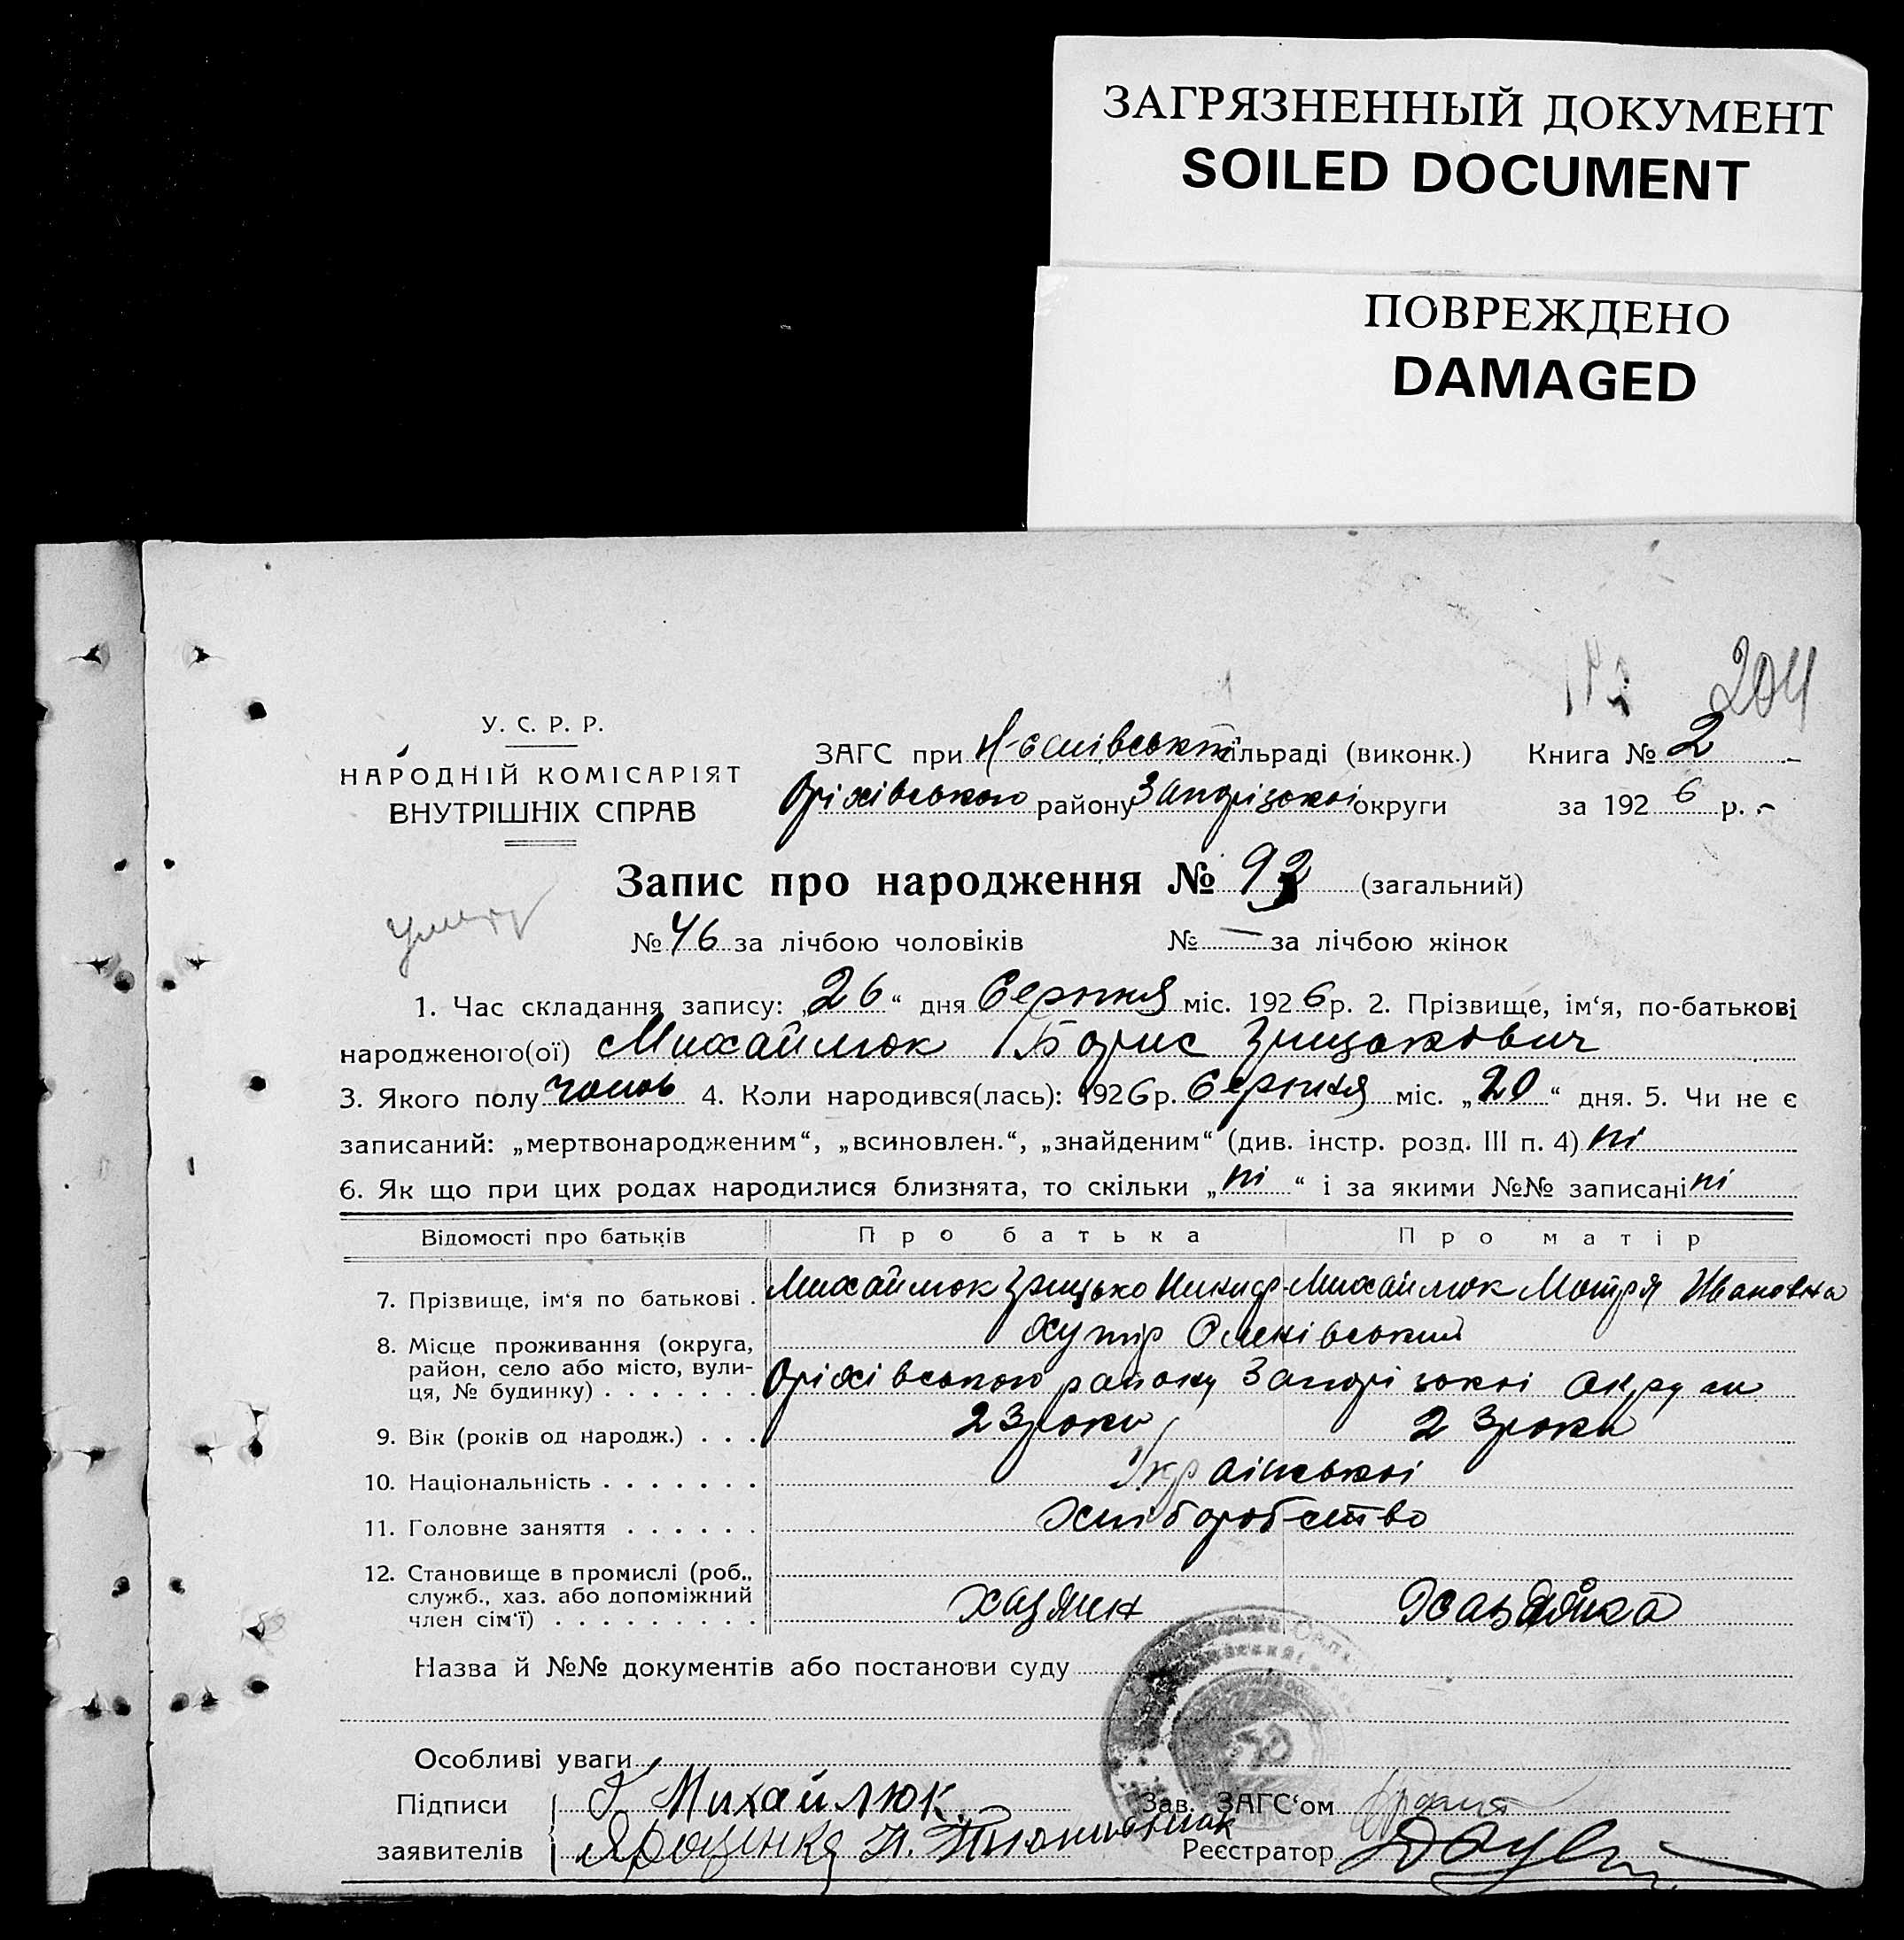 ЗАГРЯЗНЕННЫЙ ДОКУМЕНТ
SOILED DOCUMENT
ПОВРЕЖДЕНО
DAMAGED
204
У. С. Р. Р.
НАРОДНІЙ КОМІСАРІЯТ
ВНУТРІШНІХ СПРАВ
ЗАГС при сільраді (виконк.) Книга № 2
Оріхівського району Запорізької округи за 1926 р.
Запис про народження № 93 (загальний)
№ 46 за лічбою чоловіків № — за лічбою жінок
1. Час складання запису: „26“ дня Серпня міс. 1926 р. 2. Прізвище, ім‘я, по-батькові
народженого(ої) Михайлюк Борис Грицькович
3. Якого полу чолов 4. Коли народився(лась): 1926 р. Серпня міс. „20“ дня. 5. Чи не є
записаний: „мертвонародженим“, „всиновлен.“, „знайденим“ (див. інстр. розд. III п. 4) ні
6. Як що при цих родах народилися близнята, то скільки „ні“ і за якими №№ записані ні
Відомості про батьків Про батька Про матір
7. Прізвище, ім‘я по батькові . Михайлюк Грицько Никиф Михайлюк Мотря Ивановна
8. Місце проживання (округа, район, село або місто, вули-ця, № будинку) . . . . . . . Хутір Оленівський
Оріхівського району Запорізької округи
9. Вік (років од народж.) . . . 23 роки 23 роки
10. Національність . . . . . . . Української
11. Головне заняття . . . . . . Хліборобство
12. Становище в промислі (роб., служб., хаз. або допоміжний член сім‘ї) . . . . . . . . . хазяин Хазяйка
Назва й №№ документів або постанови суду
Особливі уваги
Підписи Г Михайлюк Зав. ЗАГС‘ом
заявителів Реєстратор